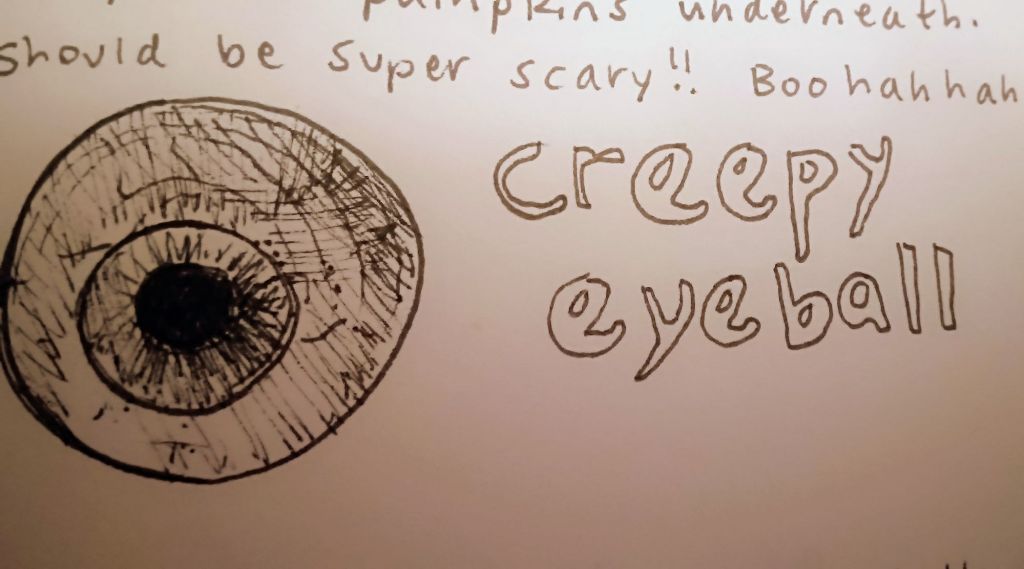 pumpkins underneath.
should be super scary!! Boohahhah
creepy
eyeball